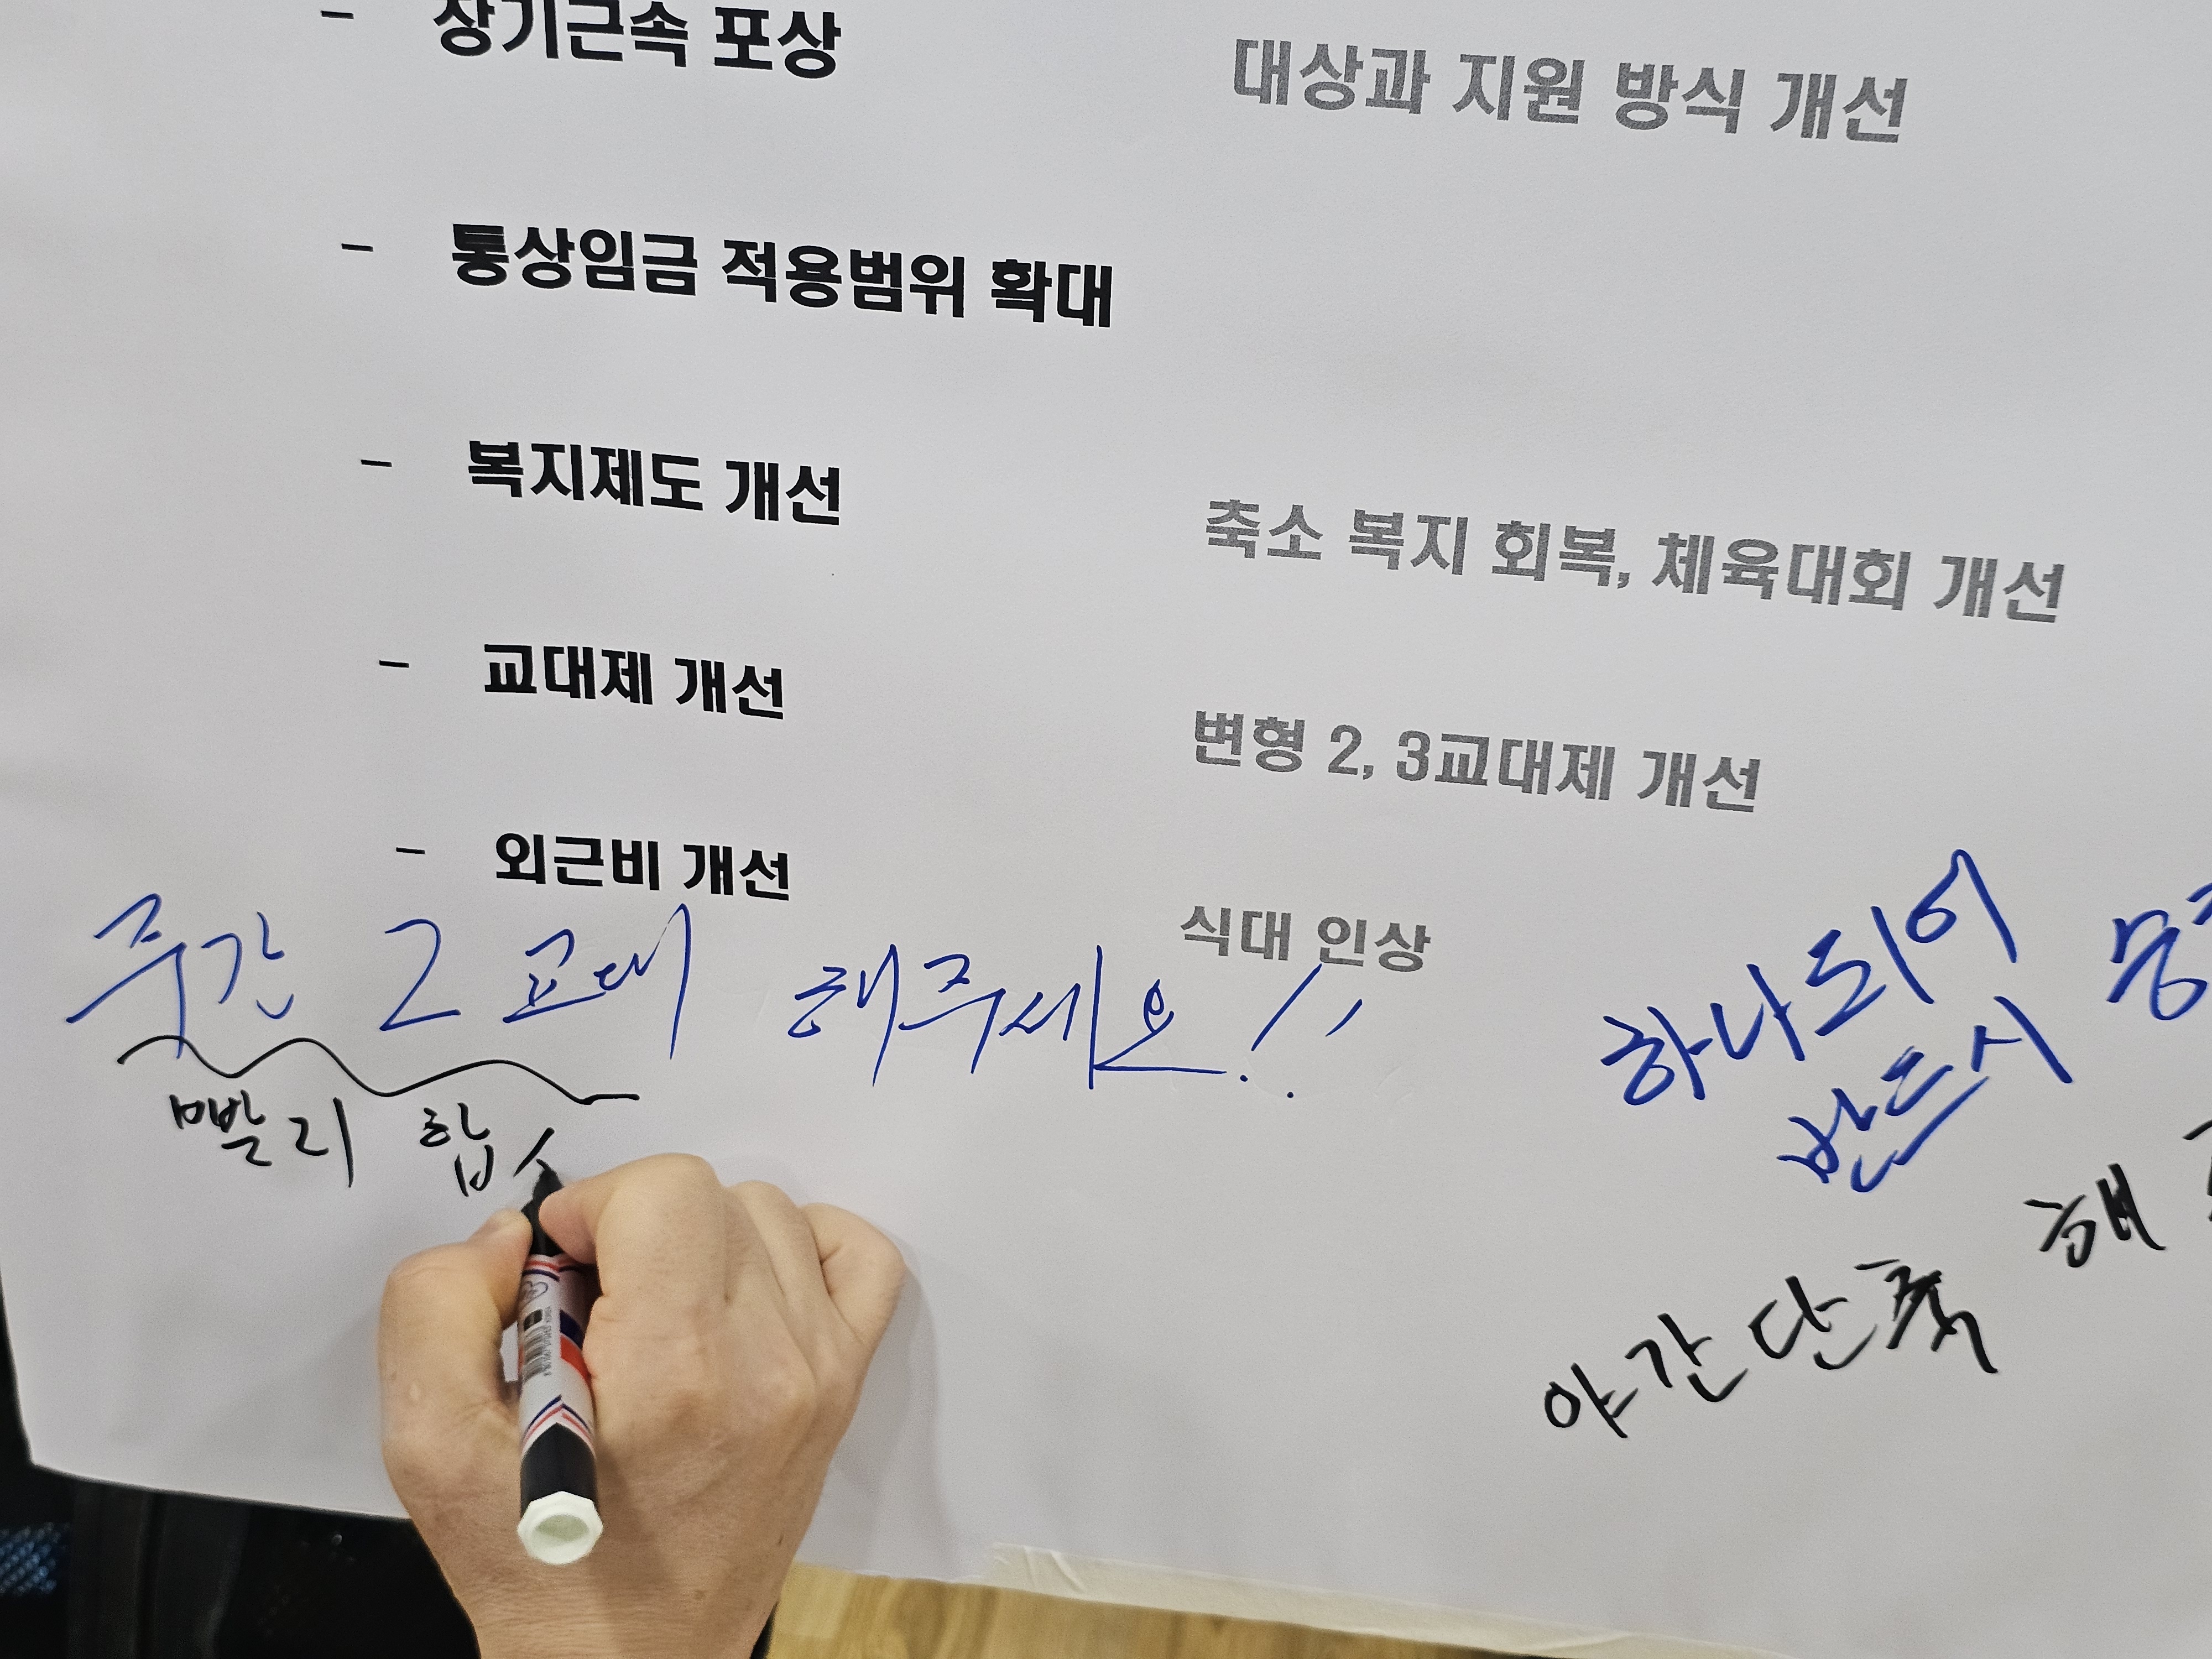 - 장기근속 포상
대상과 지원 방식 개선
- 통상임금 적용범위 확대
- 복지제도 개선
축소 복지 회복, 체육대회 개선
- 교대제 개선
변형 2, 3교대제 개선
- 외근비 개선
식대 인상
주간 2 교대 해주세요!!
빨리 합
하나되어
반드시
해
야간단축